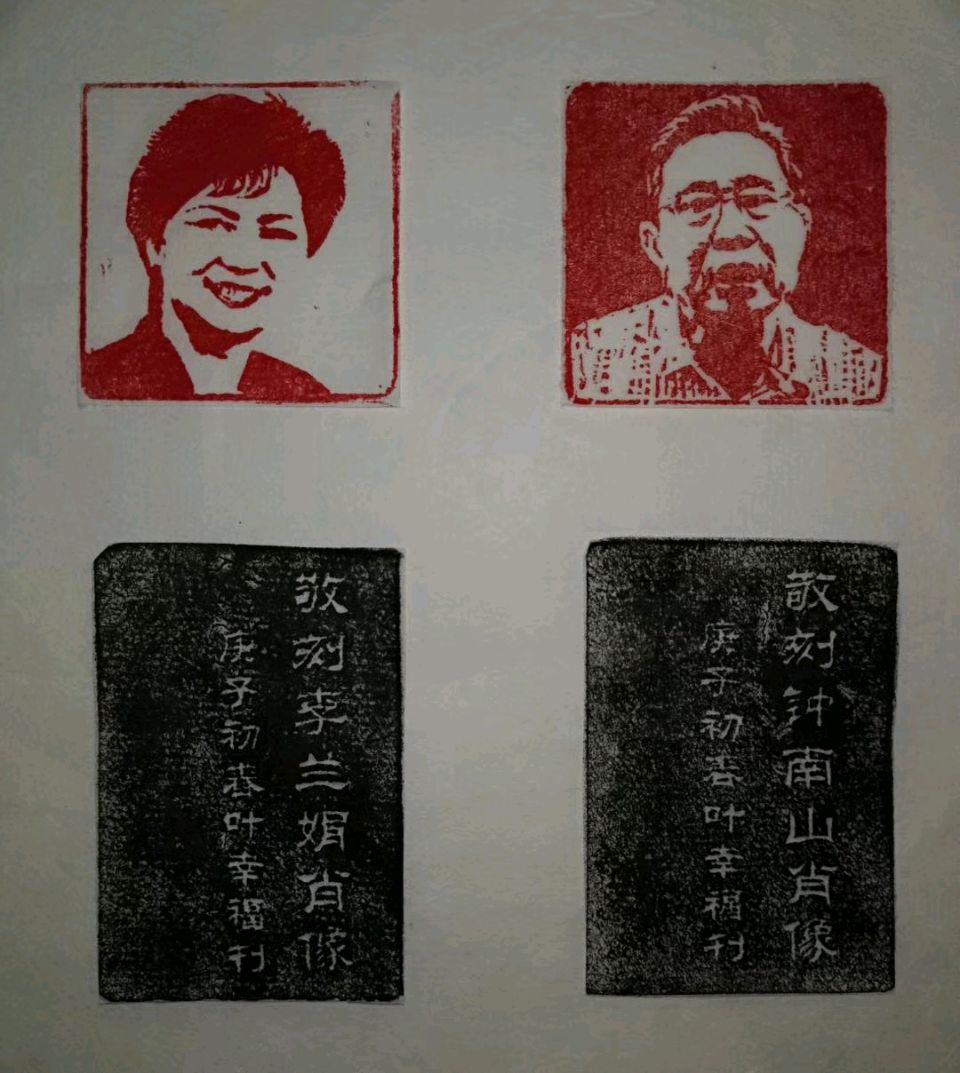 敬刻李兰娟肖像
庚子初春叶幸福刊
敬刻钟南山肖像
庚子初春叶幸福刊